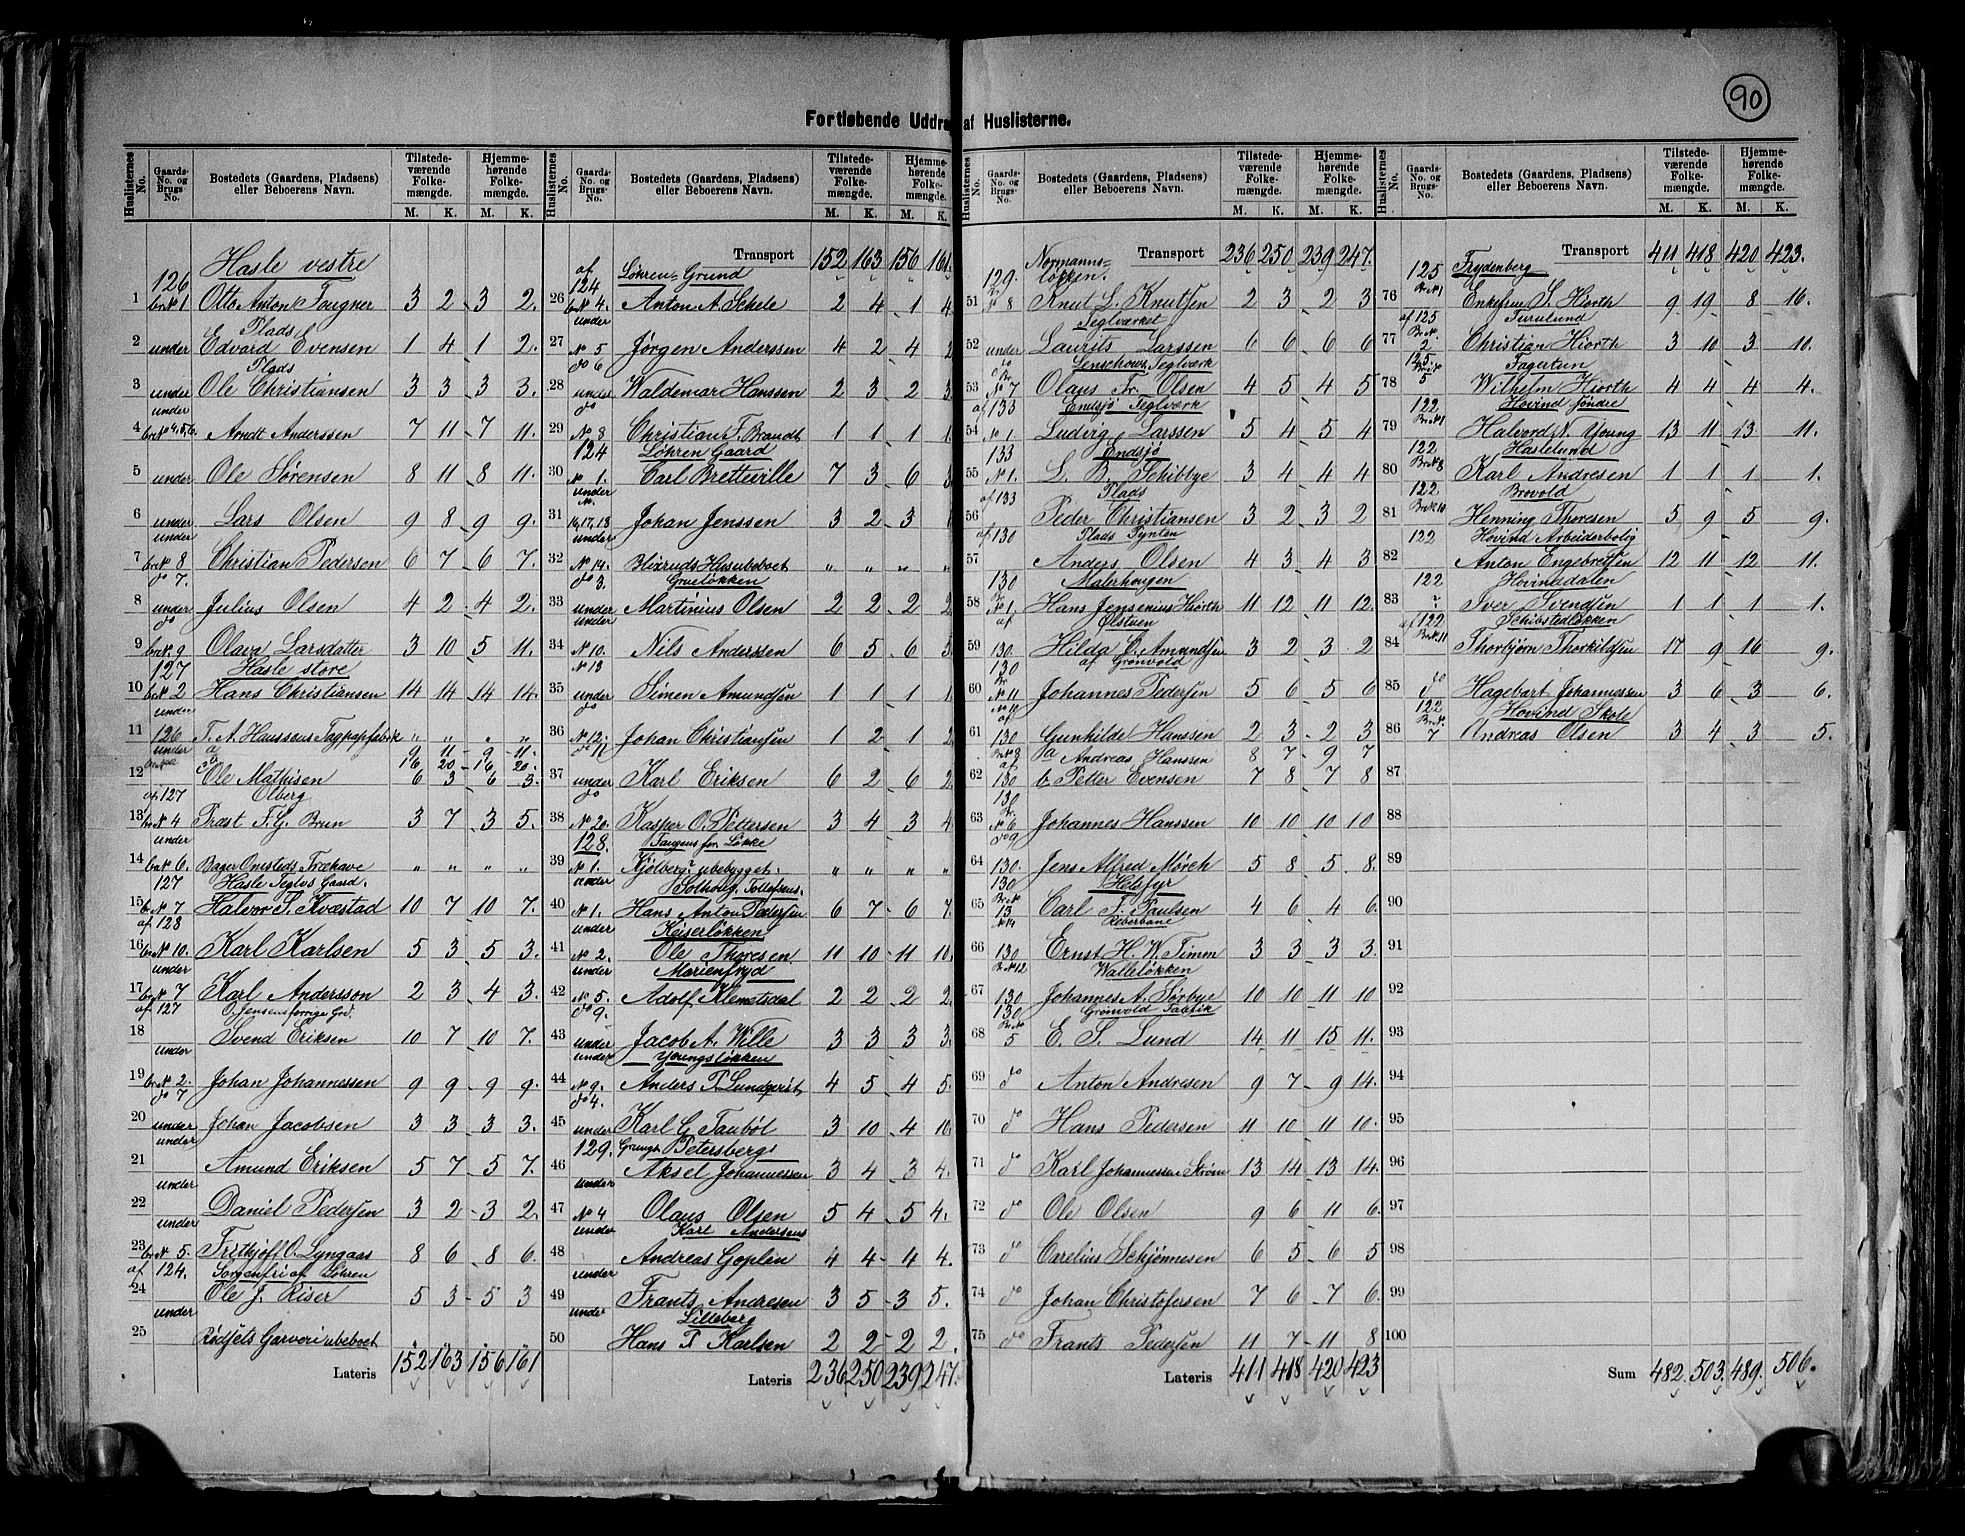 90
Fortløbende Uddrag af Huslisterne.
Huslisternes No. Gaards-No. og Brugs-No. Bostedets (Gaardens, Pladsens) eller Beboerens Navn. Tilstedeværende Folkemængde. M. K. Hjemmehørende Folkemængde. M. K.
Hasle vestre
126
1 br№ 1 Otto Anton Fougner 3 2 3 2.
Plads
2 under Edvard Evensen 1 4 1 2.
Plads
3 under Ole Christiansen 3 3 3 3.
under
4 br№ 4,5,6. Arndt Anderssen 7 11 7 11.
5 under Ole Sørensen 8 11 8 11.
6 under Lars Olsen 9 8 9 9.
under
7 br№ 8 Christian Pedersen 6 7 6 7.
do 7.
8 under Julius Olsen 4 2 4 2.
do
9 br№ 9 Olava Larsdatter 3 10 5 11.
127 Hasle store
10 br№ 2 Hans Christiansen 14 14 14 14.
under
11 126 T. A. Hanssens Tagpapfabrik " " " "
under a 9 11 9 11.
16 20 16 20.
12 Ole Mathisen 6 3 6 3.
af 127 Olberg
13 br№ 4 Præst F. G. Brun 3 7 3 5.
under
14 br№ 6. Bager Onsteds Frekave " " " "
127 Hasle Teglvs Gaard.
15 br№ 7 Halvor S. Kvæstad 10 7 10 7.
af 128
16 br№ 10. Karl Karlsen 5 3 5 3.
under
17 br№ 7 Karl Andersson 2 3 4 3.
af 127 O. Jensens forrige Grd.
18 Svend Eriksen 10 7 10 7.
under
19 br№ 2. Johan Johannessen 9 9 9 9.
do 7
20 under Johan Jacobsen 3 3 3 3.
under
21 Amund Eriksen 5 7 5 7.
under
22 Daniel Pedersen 3 2 3 2.
under
23 br№ 5. Frithjoff O. Lyngaas 8 6 8 6.
af 124. Sorgenfri af Løhren
24 Ole J. Riser 5 3 5 3
under
25 Rødsets Garveri ubeboet
Lateris 152 163 156 161

Huslisternes No. Gaards-No. og Brugs-No. Bostedets (Gaardens, Pladsens) eller Beboerens Navn. Tilstedeværende Folkemængde. M. K. Hjemmehørende Folkemængde. M. K.
Transport 152 163 156 161.
af 124 Løhren Grund
26 № 4. Anton A. Skele 2 4 1 4
under
27 № 5 Jørgen Anderssen 4 2 4 2
do 6
28 under Waldemar Hanssen 2 3 2 3
do
29 № 8 Christian F. Brandt 1 1 1 1
124 Løhren Gaard
30 № 1. Carl Bretteville 7 3 6 3
under №
31 16,17,18 Johan Jenssen 3 2 3 1
under
32 № 14. Blixruds Hus ubeboet " " " "
do 3. Grueløkken
33 under Martinius Olsen 2 2 2 2
under
34 № 10. Nils Anderssen 6 5 6 5
№ 13
35 under Simen Amundsen 1 1 1 1
do
36 № 12. Johan Christiansen 1 2 1 2
do 11
37 under Karl Eriksen 6 2 6 2
do
38 № 20. Kasper O. Pettersen 3 4 3 4
128. Tangens for Løkke
39 № 1. Kjølberg ubebygget. " " " "
under Solhoug, Tollefsens.
40 № 1. Hans Anton Pedersen 6 7 6 7.
under Keiserløkken
41 № 2. Ole Thoresen 11 10 11 10.
under Marienfryd
42 № 5. Adolf Klemetsdal 2 2 2 2
do 9.
43 under Jacob A. Wille 3 3 3 3
under Youngsløkken
44 № 9. Anders P. Lundqvist 4 5 4 5.
do 4.
45 under Karl G. Taubøl 3 10 4 10.
129. Petersberg
46 Aksel Johannessen 3 4 3 4.
under
47 № 4 Olaus Olsen 5 4 5 4.
under Karl Andersens
48 Andreas Goplen 4 4 4 4.
under
49 Frants Andresen 3 5 3 5.
under Lilleberg
50 Hans P. Karlsen 2 2 2 2.
Lateris 236 250 239 247.

Huslisternes No. Gaards-No. og Brugs-No. Bostedets (Gaardens, Pladsens) eller Beboerens Navn. Tilstedeværende Folkemængde. M. K. Hjemmehørende Folkemængde. M. K.
Transport 236 250 239 247.
129. Normannsløkken.
51 № 8 Knut L. Knutsen 2 3 2 3
Teglværket
52 under Laurits Larssen 6 6 6 6
do Jenschows Teglværk
53 № 7 Olaus Fr. Olsen 4 5 4 5
af 133 Endsjø Teglværk
54 № 1. Ludvig Larssen 5 4 5 4
133 Endsjø
55 № 1. L. B. Schibbye 3 4 4 4
af 133 Plads
56 Peder Christiansen 3 2 3 2
af 130 Plads Tynten
57 Anders Olsen 4 3 4 3
130 Malerhaugen
58 № 1. Hans Jensenius Hiorth 11 12 11 12.
af Ølstuen
59 130. Hilda C. Amundsen 3 2 3 2
130 af Grønvold
60 № 11 Johannes Pedersen 5 6 5 6
№ 10 af
61 130 Gunhilde Hanssen 2 3 2 3
Br№ 8 a Andreas Hanssen 8 7 9 7
62 130 b Petter Evensen 7 8 7 8
130 Br
63 № 6 Johannes Hanssen 10 10 10 10
do 9
64 130. Jens Alfred Mørch 5 8 5 8.
130 Helsfyr
65 Br№ 13 Carl F. Paulsen 4 6 4 6.
№ 14 Reberbane
66 130 Ernst H. W. Timm 3 3 3 3.
Br№ 12 Walleløkken
67 130 Johannes A. Sørbye 10 10 11 10
130 Grønvold Fabrik
68 Br№ 5 E. S. Lund 14 11 15 11.
69 do Anton Andresen 9 7 9 14.
70 do Hans Pedersen 11 10 11 10.
71 do Karl Johannessen Strøm 13 14 13 14.
72 do Ole Olsen 9 6 11 6.
73 do Carelius Schjønnesen 6 5 6 5
74 do Johan Christofersen 7 6 7 6.
75 do Frants Pedersen 11 7 11 8
Lateris 411 418 420 423

Huslisternes No. Gaards-No. og Brugs-No. Bostedets (Gaardens, Pladsens) eller Beboerens Navn. Tilstedeværende Folkemængde. M. K. Hjemmehørende Folkemængde. M. K.
Transport 411 418 420 423.
125 Frydenberg
76 Br№ 1 Enkefru S. Hiorth 9 19 8 16.
af 125 Furulund
77 Br№ 2 Christian Hiorth 3 10 3 10.
125. Fagertun
78 Br№ 5 Wilhelm Hiorth 4 4 4 4.
122. Hovind søndre
79 Br№ 1 Halvord N. Young 13 11 13 11.
122 Haslelund
80 Br№ 8 Karl Andresen 1 1 1 1.
122 Brovold
81 Br№ 10 Henning Thoresen 5 9 5 9.
122 Hovind Arbeiderbolig
82 Anton Engebretsen 12 11 12 11.
122 Hovinsdalen
83 ? Iver Svendsen 1 1 1 1.
af 122 Schibstedløkken
84 Br№ 11 Thorbjørn Thorkildsen 17 9 16 9.
85 do Hagebart Johannessen 3 6 3 6.
122 Hovind Skole
86 Br№ 7 Andreas Olsen 3 4 3 5.
87
88
89
90
91
92
93
94
95
96
97
98
99
100
Sum 482. 503. 489. 506.